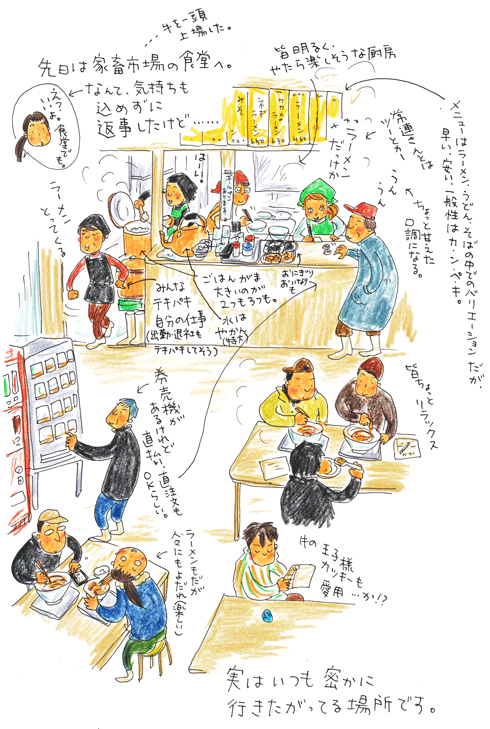 牛を一頭
上場した。
先日は家畜市場の食堂へ。
えっ、
いいよ。
食堂でも。
なんて、気持ちも
込めずに
返事したけど……
皆明るく、
やたら楽しそうな厨房
メニューはラーメン、うどん、そばの中でのバリエーションだが、
早い、安い、一般性はカ・ン・ペ・キ。
常連さんとは
ツーとカー
ラーメン
だけか
うん
うん
ちょっと甘えた
口調になる。
みそ
ネギラーメン
ラーメン
450
はーい。
ラーメン
とってくる
みんな
テキパキ
自分の仕事
(出勤・退社も
テキパキしてそう)
ごはんがま
大きいのが
2つもっつも。
水は
やかん
(特大)
おにぎり
おいなりも
券売機が
あるけれど
直払い、直注文も
OKらしい。
皆ちょっと
リラックス
ラーメンもだが
人々にもよだれ(楽しい)
牛の王子様
カッキーも
愛用…か!?
実はいつも密かに
行きたがってる場所です。